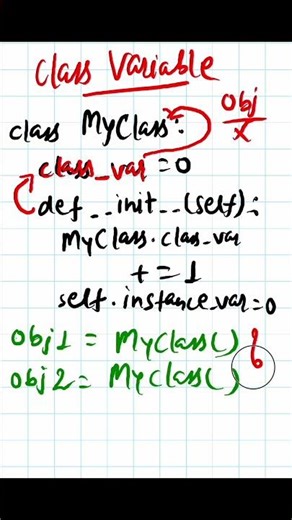 Class Variable
class MyClass:
obj
x
class_var = 0
def __init__(self):
MyClass.class_var
+= 1
self.instance_var = 0
obj1 = MyClass()
obj2 = MyClass()